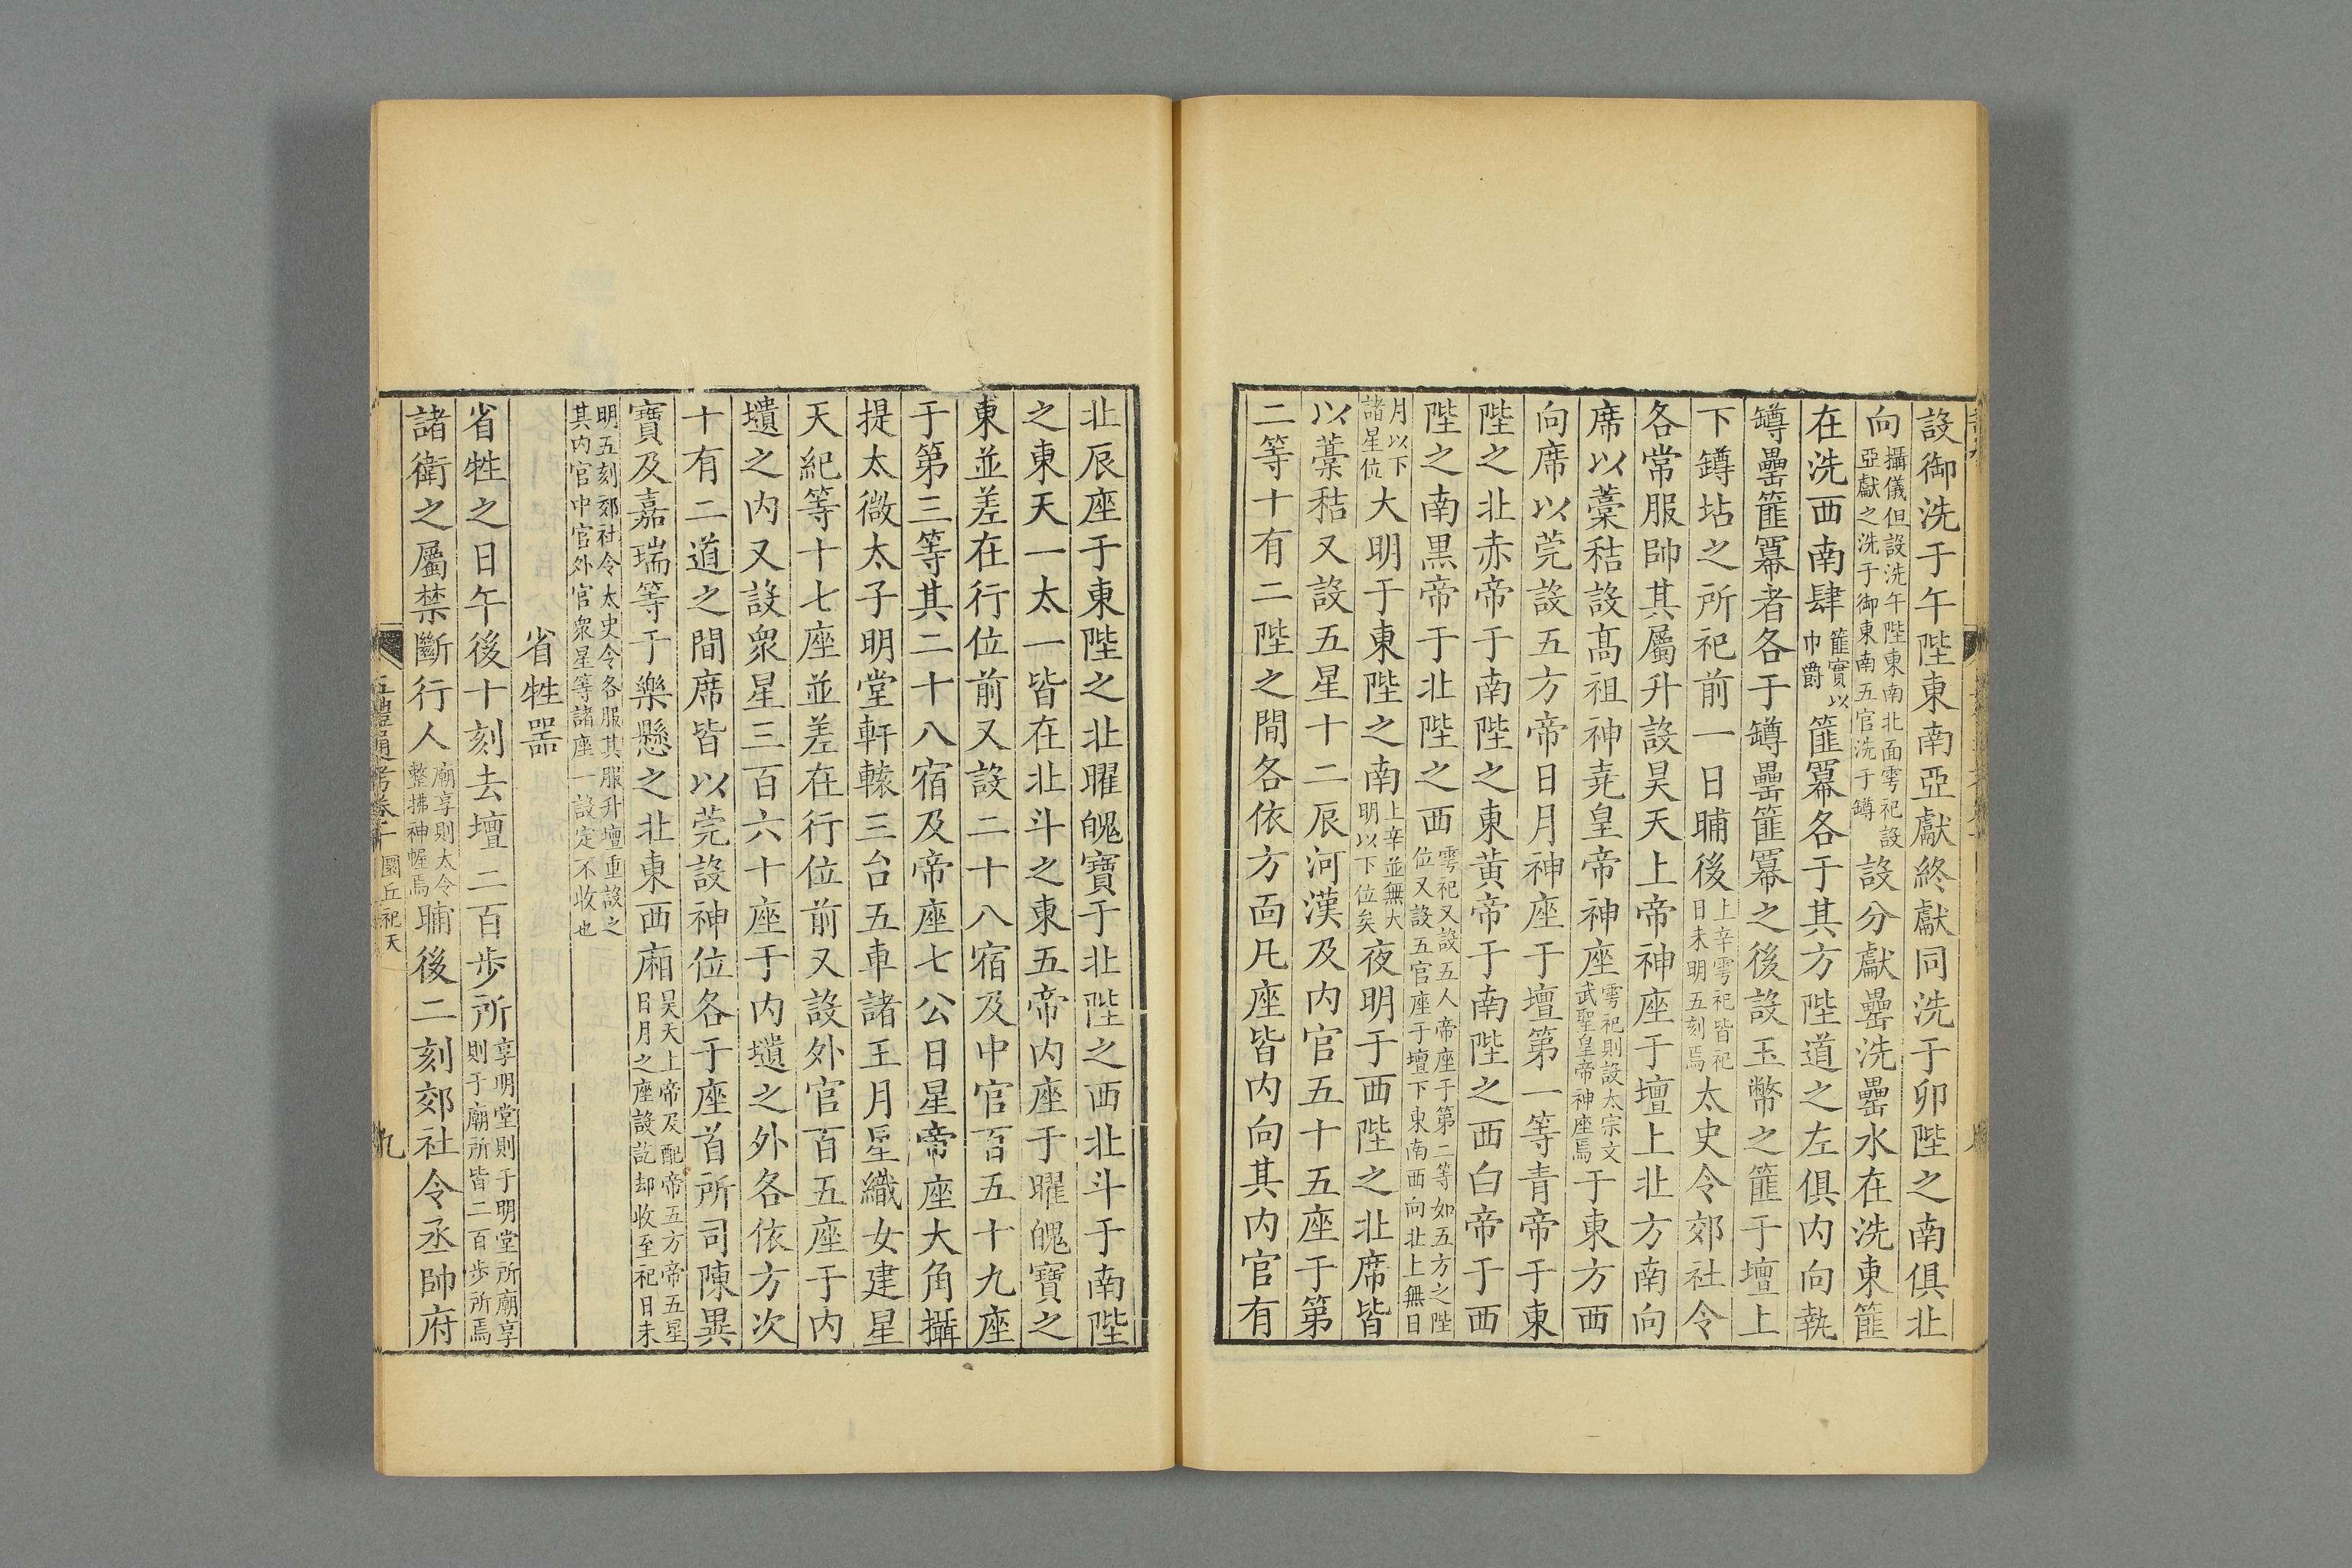 設御洗于午陛東南亞獻終獻同洗于卯陛之南俱北
向攝儀但設洗午陛東南北面雩祀設亞獻之洗于御東南五官洗于罇設分獻罍洗罍水在洗東篚
在洗西南肆篚實以巾爵篚冪各于其方陛道之左俱内向執
罇罍篚冪者各于罇罍篚冪之後設玉幣之篚于壇上
下罇坫之所祀前一日晡後上辛雩祀皆祀日未明五刻焉太史令郊社令
各常服帥其屬升設昊天上帝神座于壇上北方南向
席以藁秸設髙祖神堯皇帝神座雩祀則設太宗文武聖皇帝神座焉于東方西
向席以莞設五方帝日月神座于壇第一等青帝于東
陛之北赤帝于南陛之東黄帝于南陛之西白帝于西
陛之南黒帝于北陛之西雩祀又設五人帝座于第二等如五方之陛位又設五官座于壇下東南西向北上無日
月以下諸星位大明于東陛之南上辛並無大明以下位矣夜明于西陛之北席皆
以藁秸又設五星十二辰河漢及内官五十五座于第
二等十有二陛之間各依方面凡座皆内向其内官有
北辰座于東陛之北曜魄寶于北陛之西北斗于南陛
之東天一太一皆在北斗之東五帝内座于曜魄寶之
東並差在行位前又設二十八宿及中官百五十九座
于第三等其二十八宿及帝座七公日星帝座大角攝
提太微太子明堂軒轅三台五車諸王月星織女建星
天紀等十七座並差在行位前又設外官百五座于内
壝之内又設衆星三百六十座于内壝之外各依方次
十有二道之間席皆以莞設神位各于座首所司陳異
寶及嘉瑞等于樂懸之北東西廂昊天上帝及配帝五方帝五星日月之座設訖却收至祀日未
明五刻郊社令太史令各服其服升壇重設之其内官中官外官衆星等諸座一設定不收也
省牲器
省牲之日午後十刻去壇二百歩所享明堂則于明堂所廟享則于廟所皆二百歩所焉
諸衛之屬禁斷行人廟享則太令整拂神幄焉晡後二刻郊社令丞帥府
五禮通考卷十 圜丘祀天 九